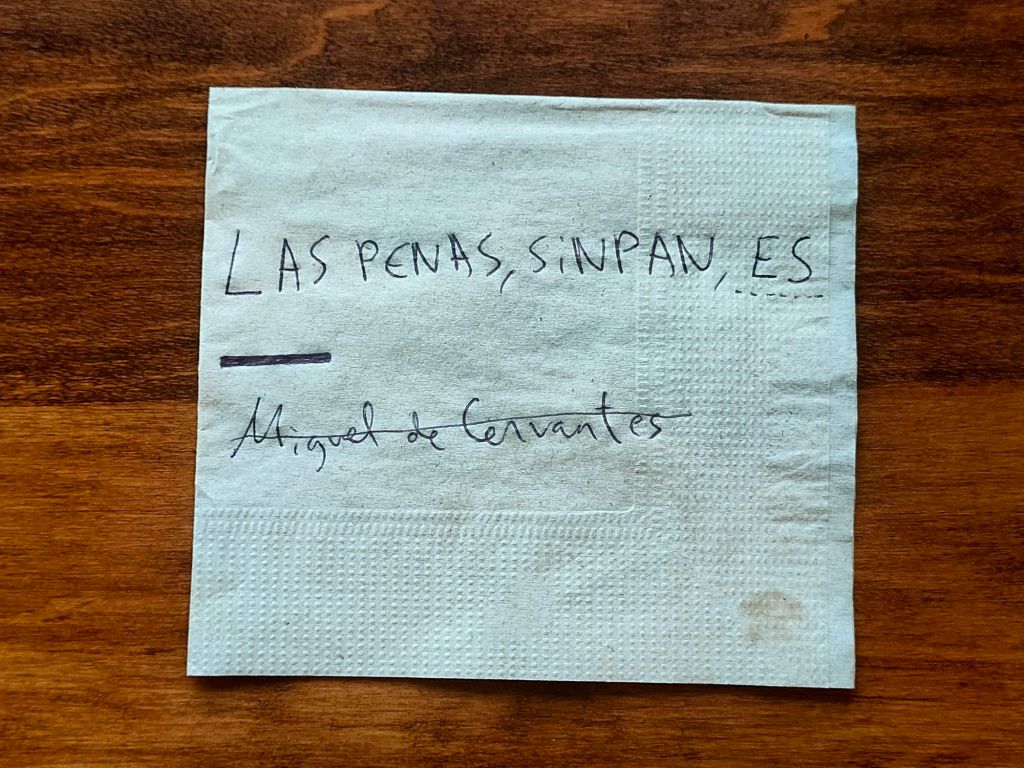 LAS PENAS, SiNPAN, ES
Miguel de Cervantes